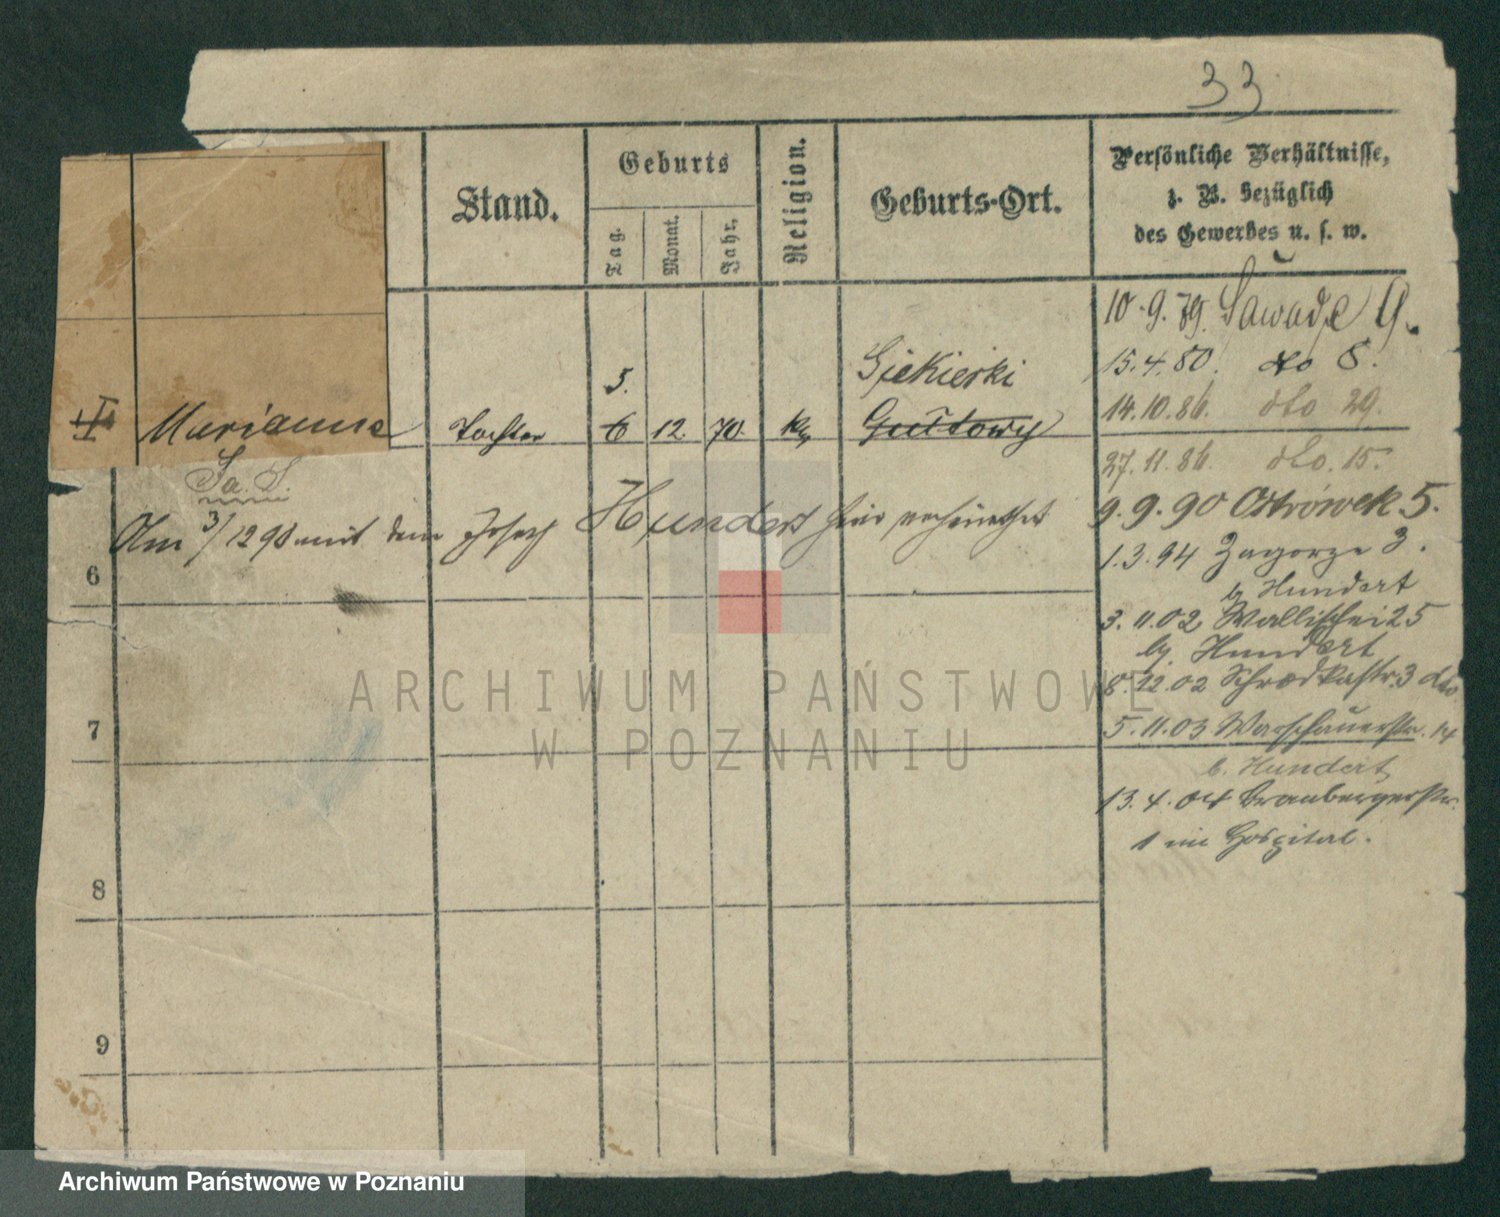 33
Stand.
Geburts
Tag.
Monat.
Jahr.
Religion.
Geburts-Ort.
Persönliche Verhältnisse,
z. B. bezüglich
des Gewerbes u. s. w.
10.9.79. Sawade 9.
5.
Siekierki
15.4.80. dto 8.
Marianne Tochter 6 12 70. Gultowy
14.10.86. dto 29.
27.11.86. dto. 15.
Sa. S.
9.9.90 Ostrówek 5.
Am 3/12 90 mit dem Joseph Hundert hier verheirathet
1.3.94 Zagorze 3.
6
b. Hundert
3.11.02 Wallischei 25
bg. Hundert
8.12.02 Schrodkastr. 3 dto
7
5.11.03 Warschauerstr. 14
b. Hundert
13.4.04
1 im Hospital.
8
9
ARCHIWUM PAŃSTWOWE
W POZNANIU
Archiwum Państwowe w Poznaniu